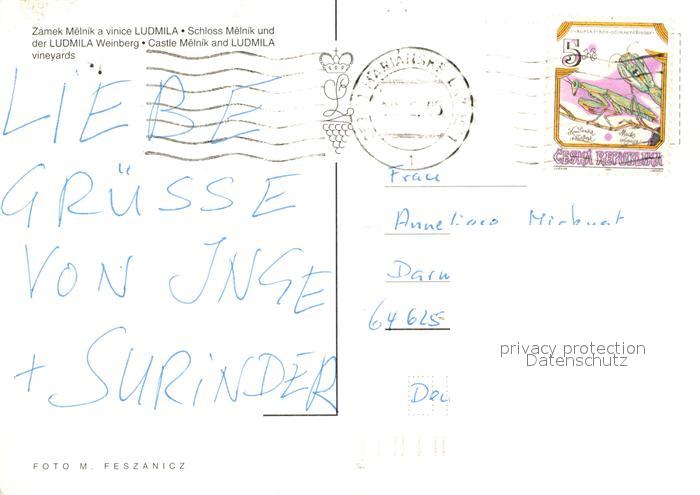 Zámek Mělník a vinice LUDMILA • Schloss Mělník und
der LUDMILA Weinberg • Castle Mělník and LUDMILA
vineyards
LIEBE
GRÜSSE
VON INGE
+ SURINDER
FOTO M. FESZANICZ
MARIÁNSKÉ
1
5 Kč
ČESKÁ REPUBLIKA
Frau
Darm
64625
privacy protection
Datenschutz